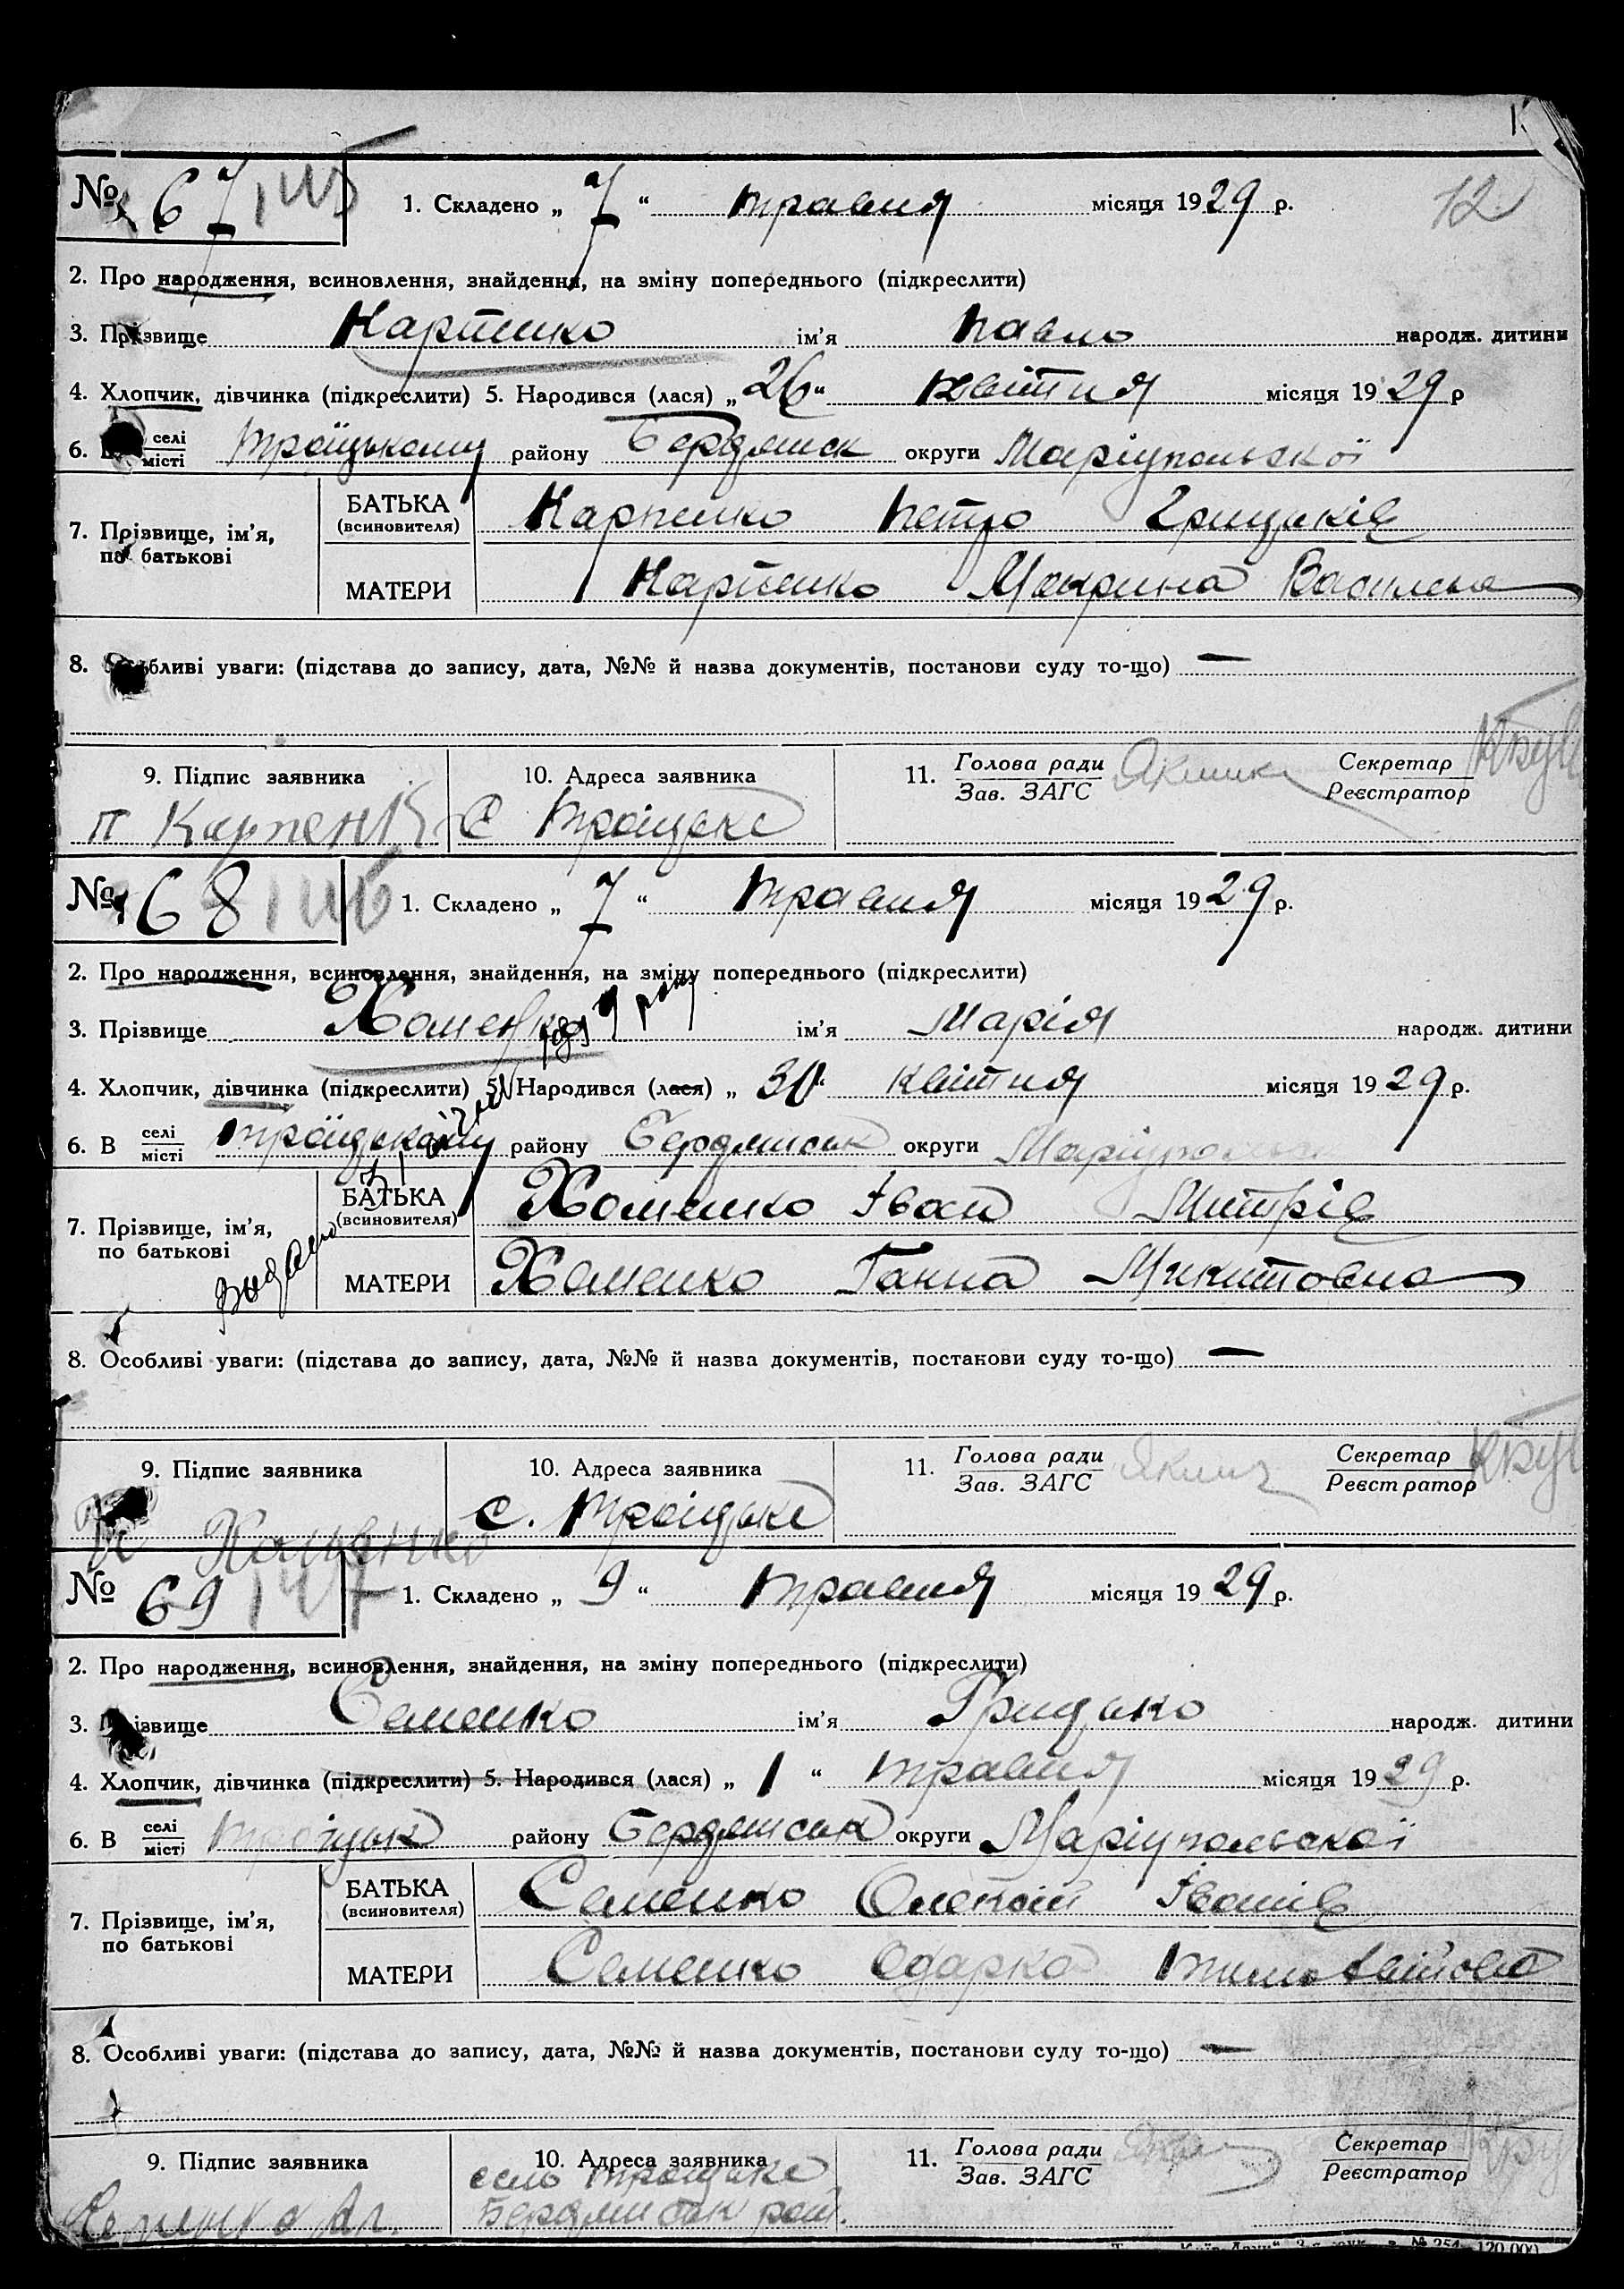 12
№ 67 145 1. Складено „ 7 “ травня місяця 1929 р.
2. Про народження, всиновлення, знайдення, на зміну попереднього (підкреслити)
3. Прізвище Карпенко ім'я Павло народж. дитини
4. Хлопчик, дівчинка (підкреслити) 5. Народився (лася) „ 26 “ квітня місяця 1929 р
6. селі місті Троїцькому району Бердянськ округи Маріупольської
7. Прізвище, ім'я, по батькові
БАТЬКА (всиновителя) Карпенко Петро Грицьків
МАТЕРИ Карпенко Макрина Василева
8. Особливі уваги: (підстава до запису, дата, №№ й назва документів, постанови суду то-що) —
9. Підпис заявника 10. Адреса заявника 11. Голова ради Зав. ЗАГС Секретар Реєстратор
П Карпенко С Троїцьке
№ 68 146 1. Складено „ 7 “ травня місяця 1929 р.
2. Про народження, всиновлення, знайдення, на зміну попереднього (підкреслити)
3. Прізвище Хоменко ім'я Марія народж. дитини
4. Хлопчик, дівчинка (підкреслити) 5. Народився (лася) „ 30 “ квітня місяця 1929 р.
6. В селі місті Троїцькому району Бердянськ округи Маріупольськ
7. Прізвище, ім'я, по батькові
БАТЬКА (всиновителя) Хоменко Іван Митрів
МАТЕРИ Хоменко Ганна Микитовна
Видано
року
8. Особливі уваги: (підстава до запису, дата, №№ й назва документів, постанови суду то-що) —
9. Підпис заявника 10. Адреса заявника 11. Голова ради Зав. ЗАГС Секретар Реєстратор
Хоменко с. Троїцьке
№ 69 147 1. Складено „ 9 “ травня місяця 1929 р.
2. Про народження, всиновлення, знайдення, на зміну попереднього (підкреслити)
3. Прізвище Семенко ім'я Грицько народж. дитини
4. Хлопчик, дівчинка (підкреслити) 5. Народився (лася) „ 1 “ травня місяця 1929 р.
6. В селі місті Троїцьк району Бердянськ округи Маріупольської
7. Прізвище, ім'я, по батькові
БАТЬКА (всиновителя) Семенко Олексій Іванів
МАТЕРИ Семенко Одарка
8. Особливі уваги: (підстава до запису, дата, №№ й назва документів, постанови суду то-що) —
9. Підпис заявника 10. Адреса заявника 11. Голова ради Зав. ЗАГС Секретар Реєстратор
село Троїцьке
Бердянськ рай.